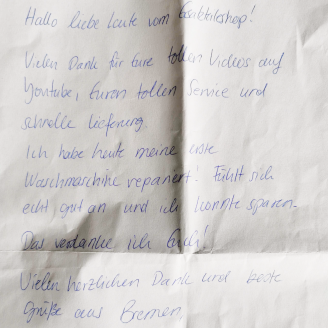 Hallo liebe Leute vom
Vielen Dank für Eure tollen Videos auf
Youtube, Euren tollen Service und
schnelle Lieferung.
Ich habe heute meine erste
Waschmaschine repariert! Fühlt sich
echt gut an und ich konnte sparen.
Das verdanke ich Euch!
Vielen herzlichen Dank und beste
Grüße aus Bremen